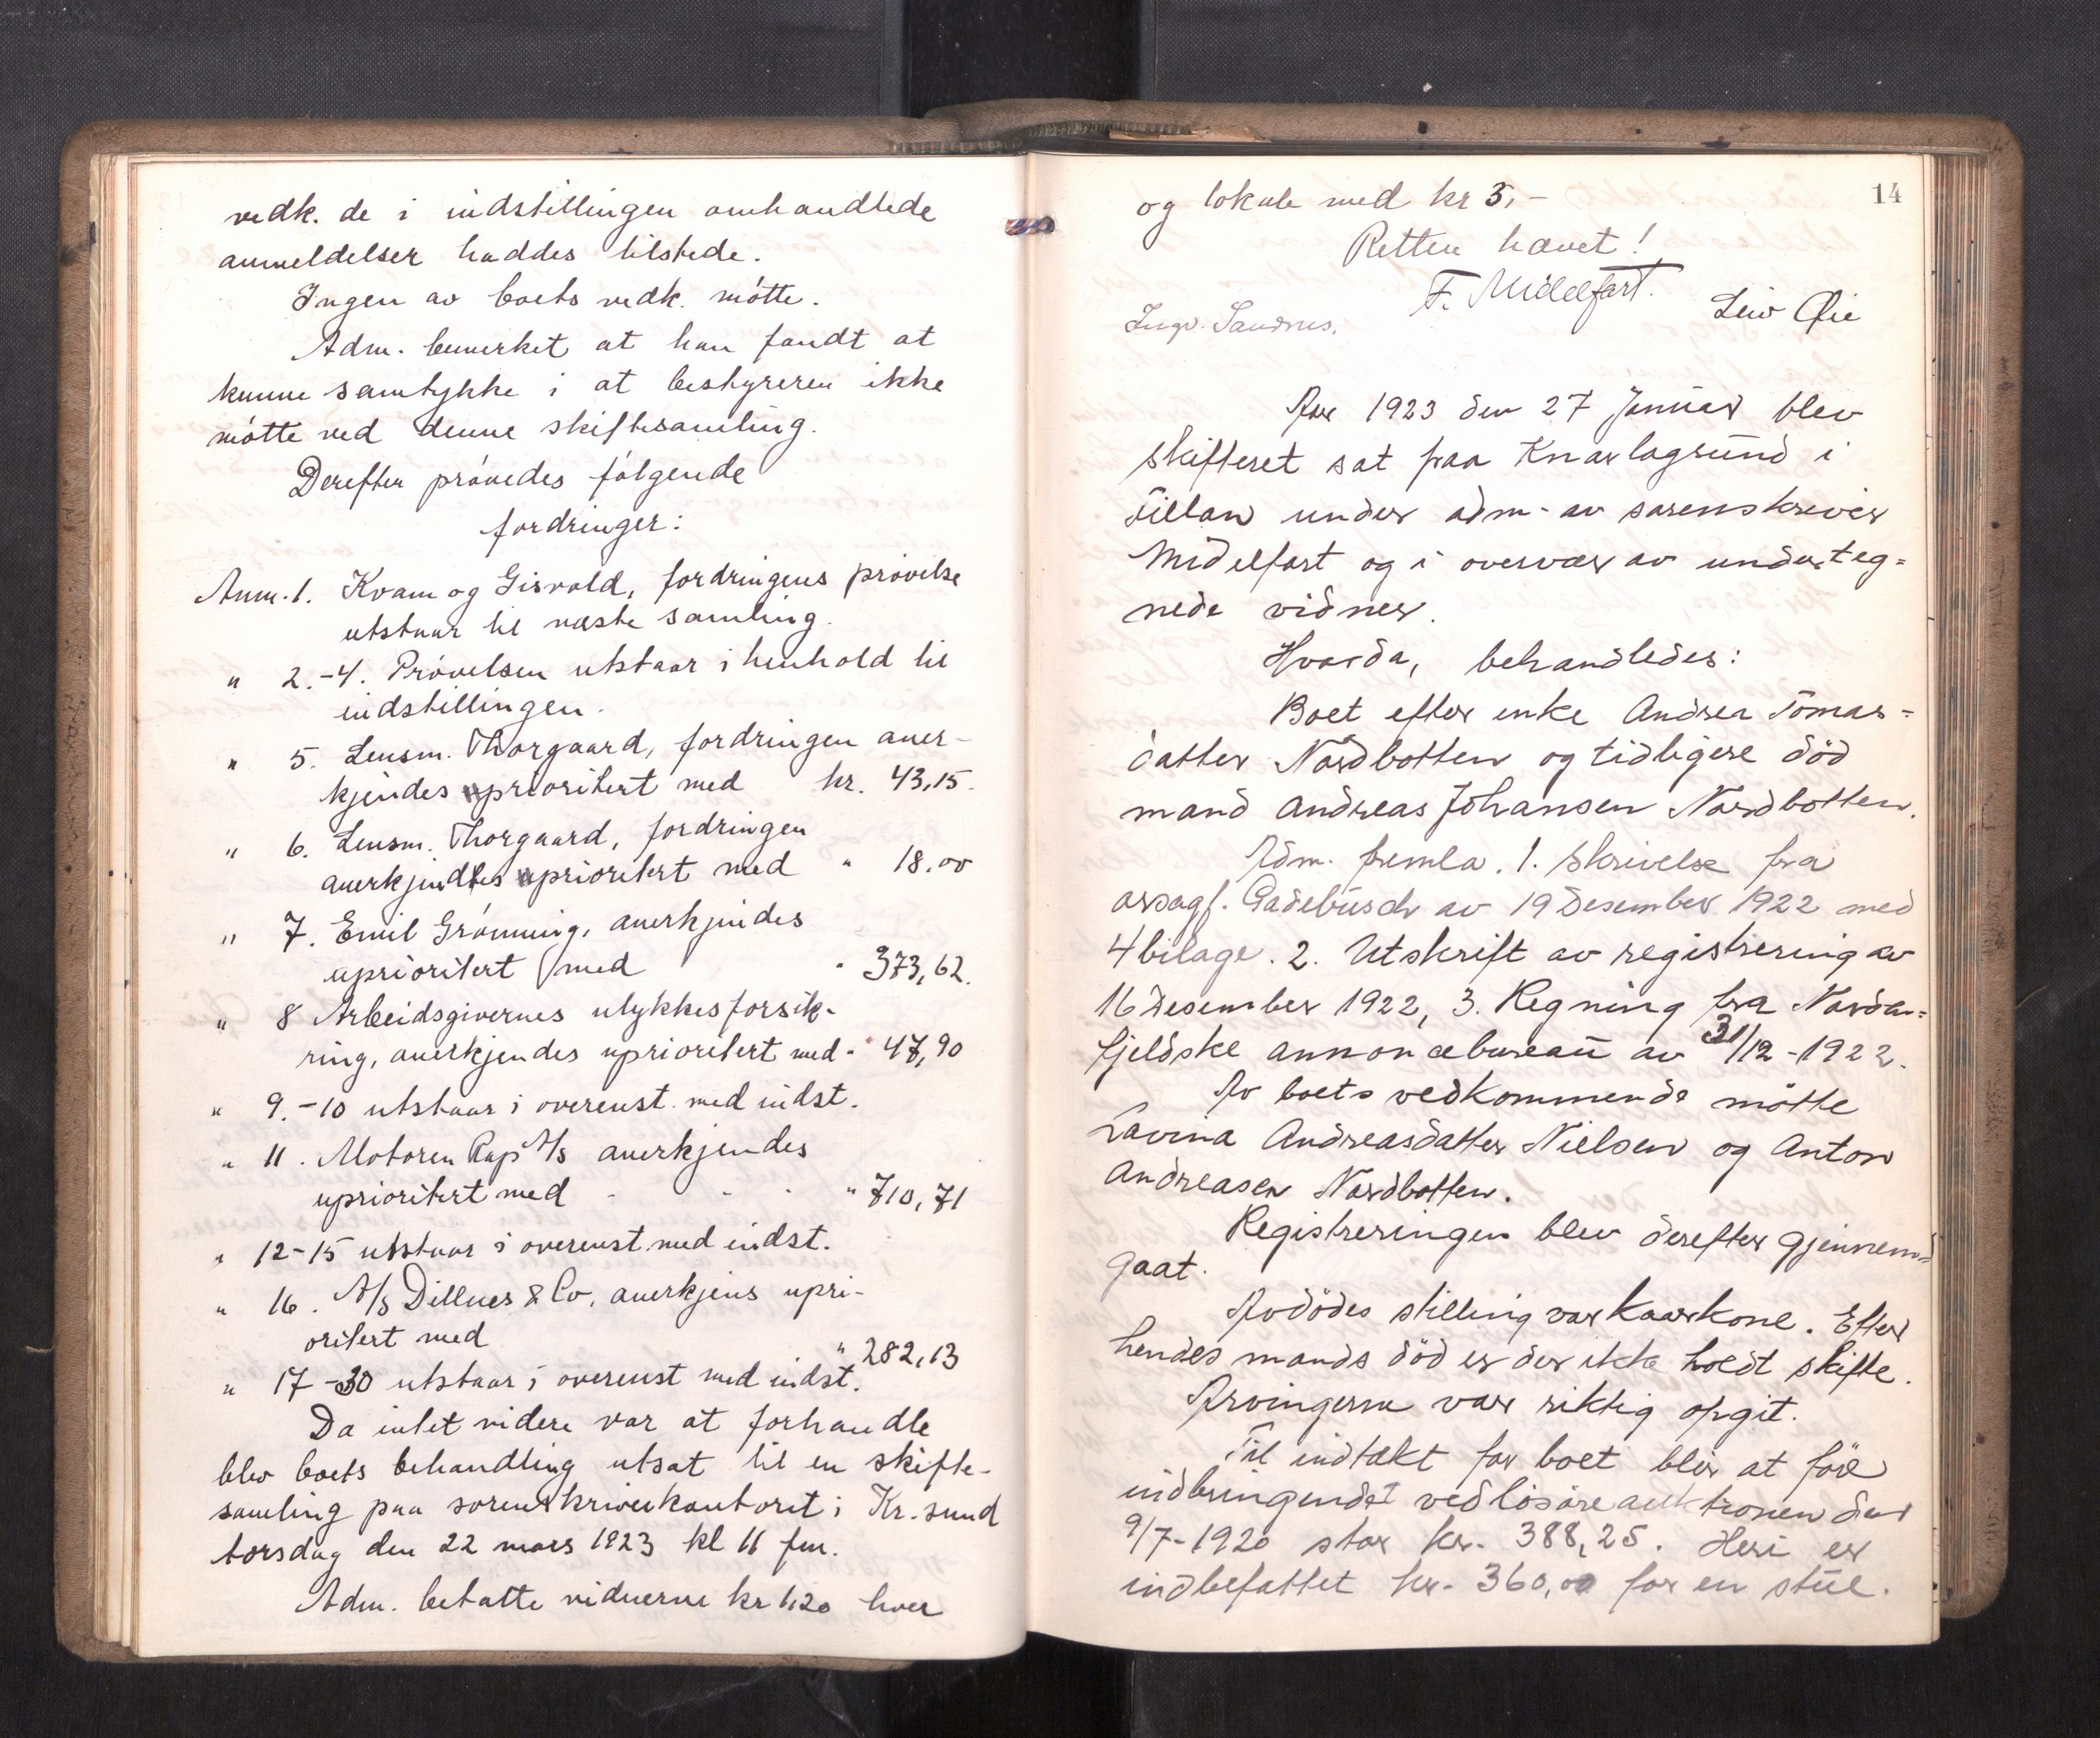 vedk. de i indstillingen omhandlede
anmeldelser haddes tilstede.
Ingen av boets vedk. møtte.
Adm. bemerket at han fandt at
kunne samtykke i at bestyreren ikke
møtte ved denne skiftesamling.
Derefter prøvedes følgende
fordringer:
Anm. 1. Kvam og Gisvold, fordringens prøvelse
utstaar til næste samling.
" 2.-4. Prøvelsen utstaar i henhold til
indstillingen.
" 5. Lensm. Thorgaard, fordringen aner-
kjendes uprioritert med kr. 43,15.
" 6. Lensm. Thorgaard, fordringen
anerkjendes uprioritert med " 18.00
" 7. Emil Grønning, anerkjendes
uprioritert med " 373,62.
" 8 Arbeidsgivernes ulykkesforsik-
ring, anerkjendes uprioritert med " 47,90
" 9.-10 utstaar i overenst. med indst.
" 11. Motoren Rap A/s anerkjendes
uprioritert med " 710,71
" 12-15 utstaar i overenst. med indst.
" 16. A/s Dillner & Co, anerkjens upri-
oritert med " 282,13
" 17-30 utstaar i overenst med indst.
Da intet videre var at forhandle
blev boets behandling utsat til en skifte-
samling paa sorenskriverkontoret i Kr.sund
torsdag den 22 mars 1923 kl 11 fm.
Adm. betalte vidnerne kr 1,20 hver
14
og lokale med kr 3,-
Retten hævet!
F. Midelfart.
Ingv. Sandnes. Leiv Øie
Aar 1923 den 27 Januar blev
skifteret sat paa Knarlagsund i
Fillan under adm. av sorenskriver
Midelfart og i overvær av underteg=
nede vidner.
Hvorda, behandledes:
Boet efter enke Andrea Tomas=
datter Nordbotten og tidligere död
mand Andreas Johansen Nordbotten.
Adm. fremla. 1. Skrivelse fra
orsagf. Gadebusch av 19 Desember 1922 med
4 bilage. 2. Utskrift av registrering av
16 Desember 1922, 3. Regning fra Nordan=
fjeldske annoncebureau av 31/12-1922.
Av boets vedkommende mötte
Lavina Andreasdatter Nielsen og Anton
Andreasen Nordbotten.
Registreringen blev derefter gjennem=
gaat.
Avdödes stilling var kaarkone. Efter
hendes mands död er der ikke holdt skifte.
Arvingerne var riktig opgit.
Til indtækt for boet blir at före
indbringendet ved lösöreauktionen den
9/7-1920 stor kr. 388,25. Heri er
indbefattet kr. 360,00 for en stue.